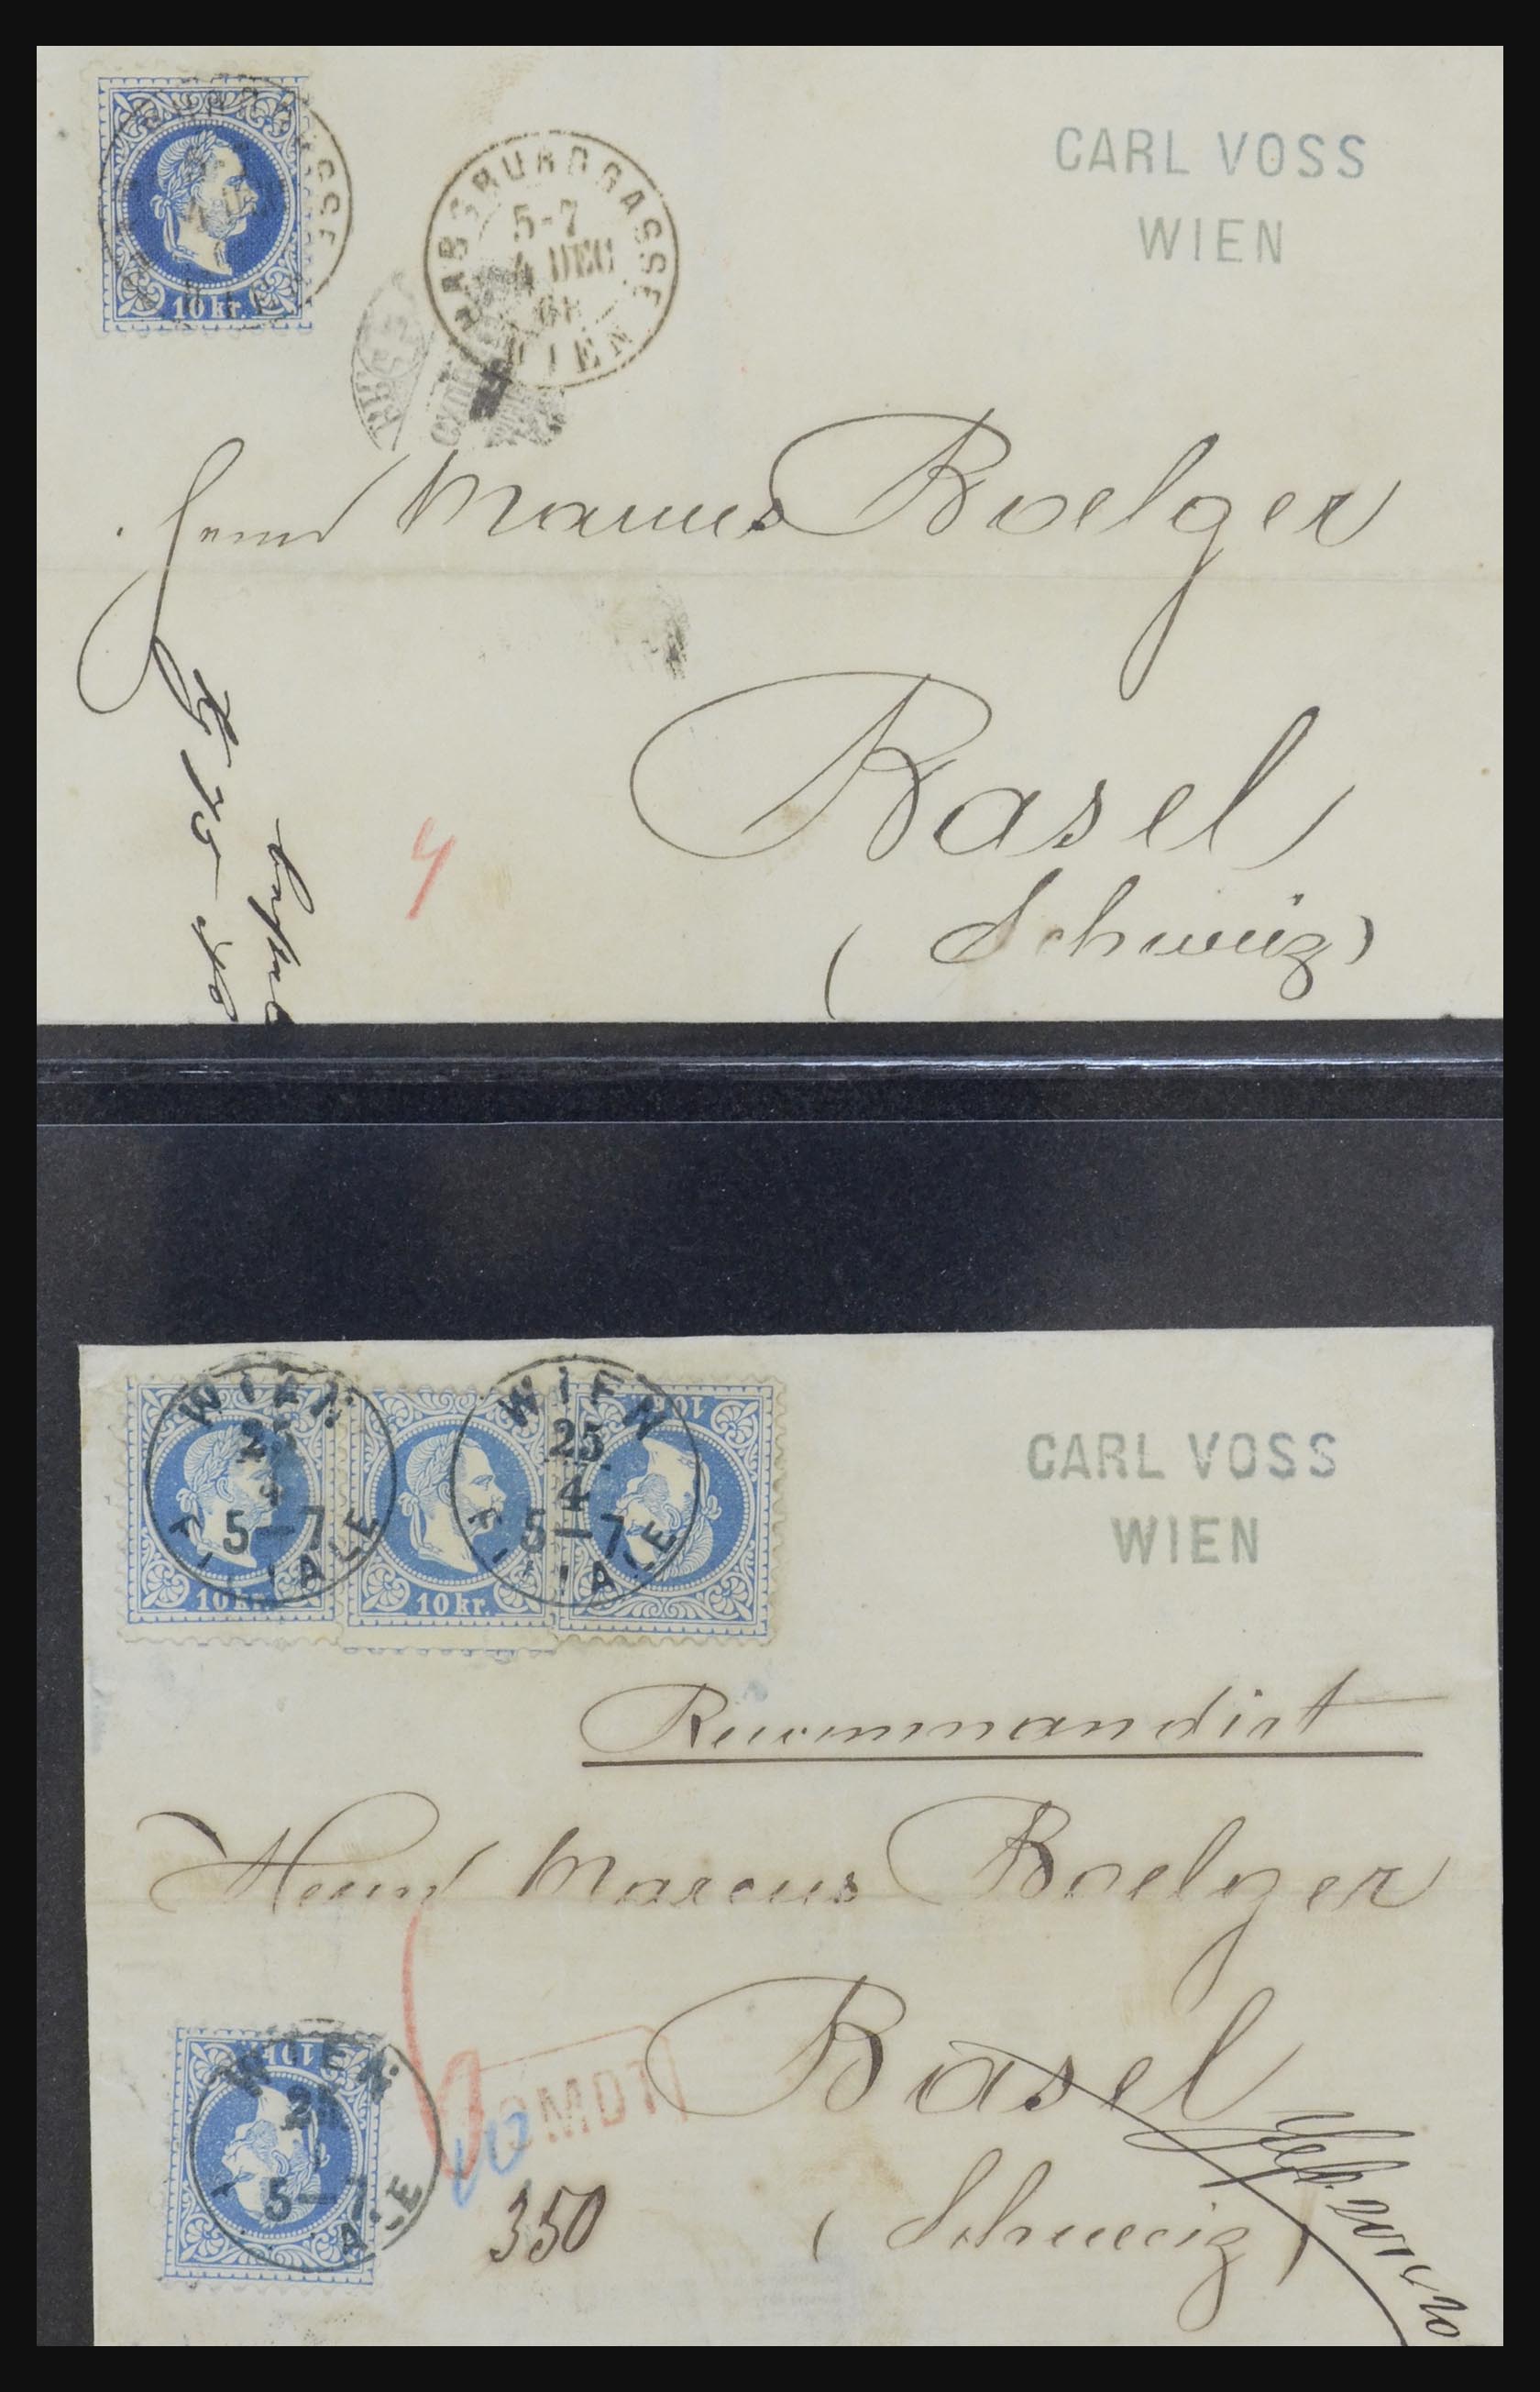 10 kr.
HABSBURGGASSE
5-7
4 DEC
68
WIEN
CARL VOSS
WIEN
Herrn Marcus Boelger
Basel
(Schweiz)
4
WIEN
25
4
5-7
FILIALE
10 kr.
10 kr.
WIEN
25
4
5-7
FILIALE
10 kr.
CARL VOSS
WIEN
Recommandirt
Herrn Marcus Boelger
Basel
(Schweiz)
WIEN
5-7
10 kr.
350